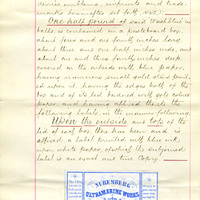 device, emblems, imprints and trade-
marks hereinafter set forth.
One half pound of said Wash blue in
balls is contained in a pasteboard box,
about four and one fourth inches long,
about three and one half inches wide, and
about one and three fourths inches deep,
covered on the outside with blue paper,
having numerous small gold stars print-
ed upon it, having the edges both of the
box and of its lid banded with gold colored
paper, and having affixed thereto the
following labels, in the manner following:
Upon the outside and top of the
lid of each box there has been and is
affixed a label printed with blue ink
upon white paper, of which the subjoined
label is an exact and true copy:
NUREMBERG
ULTRAMARINE WORKS